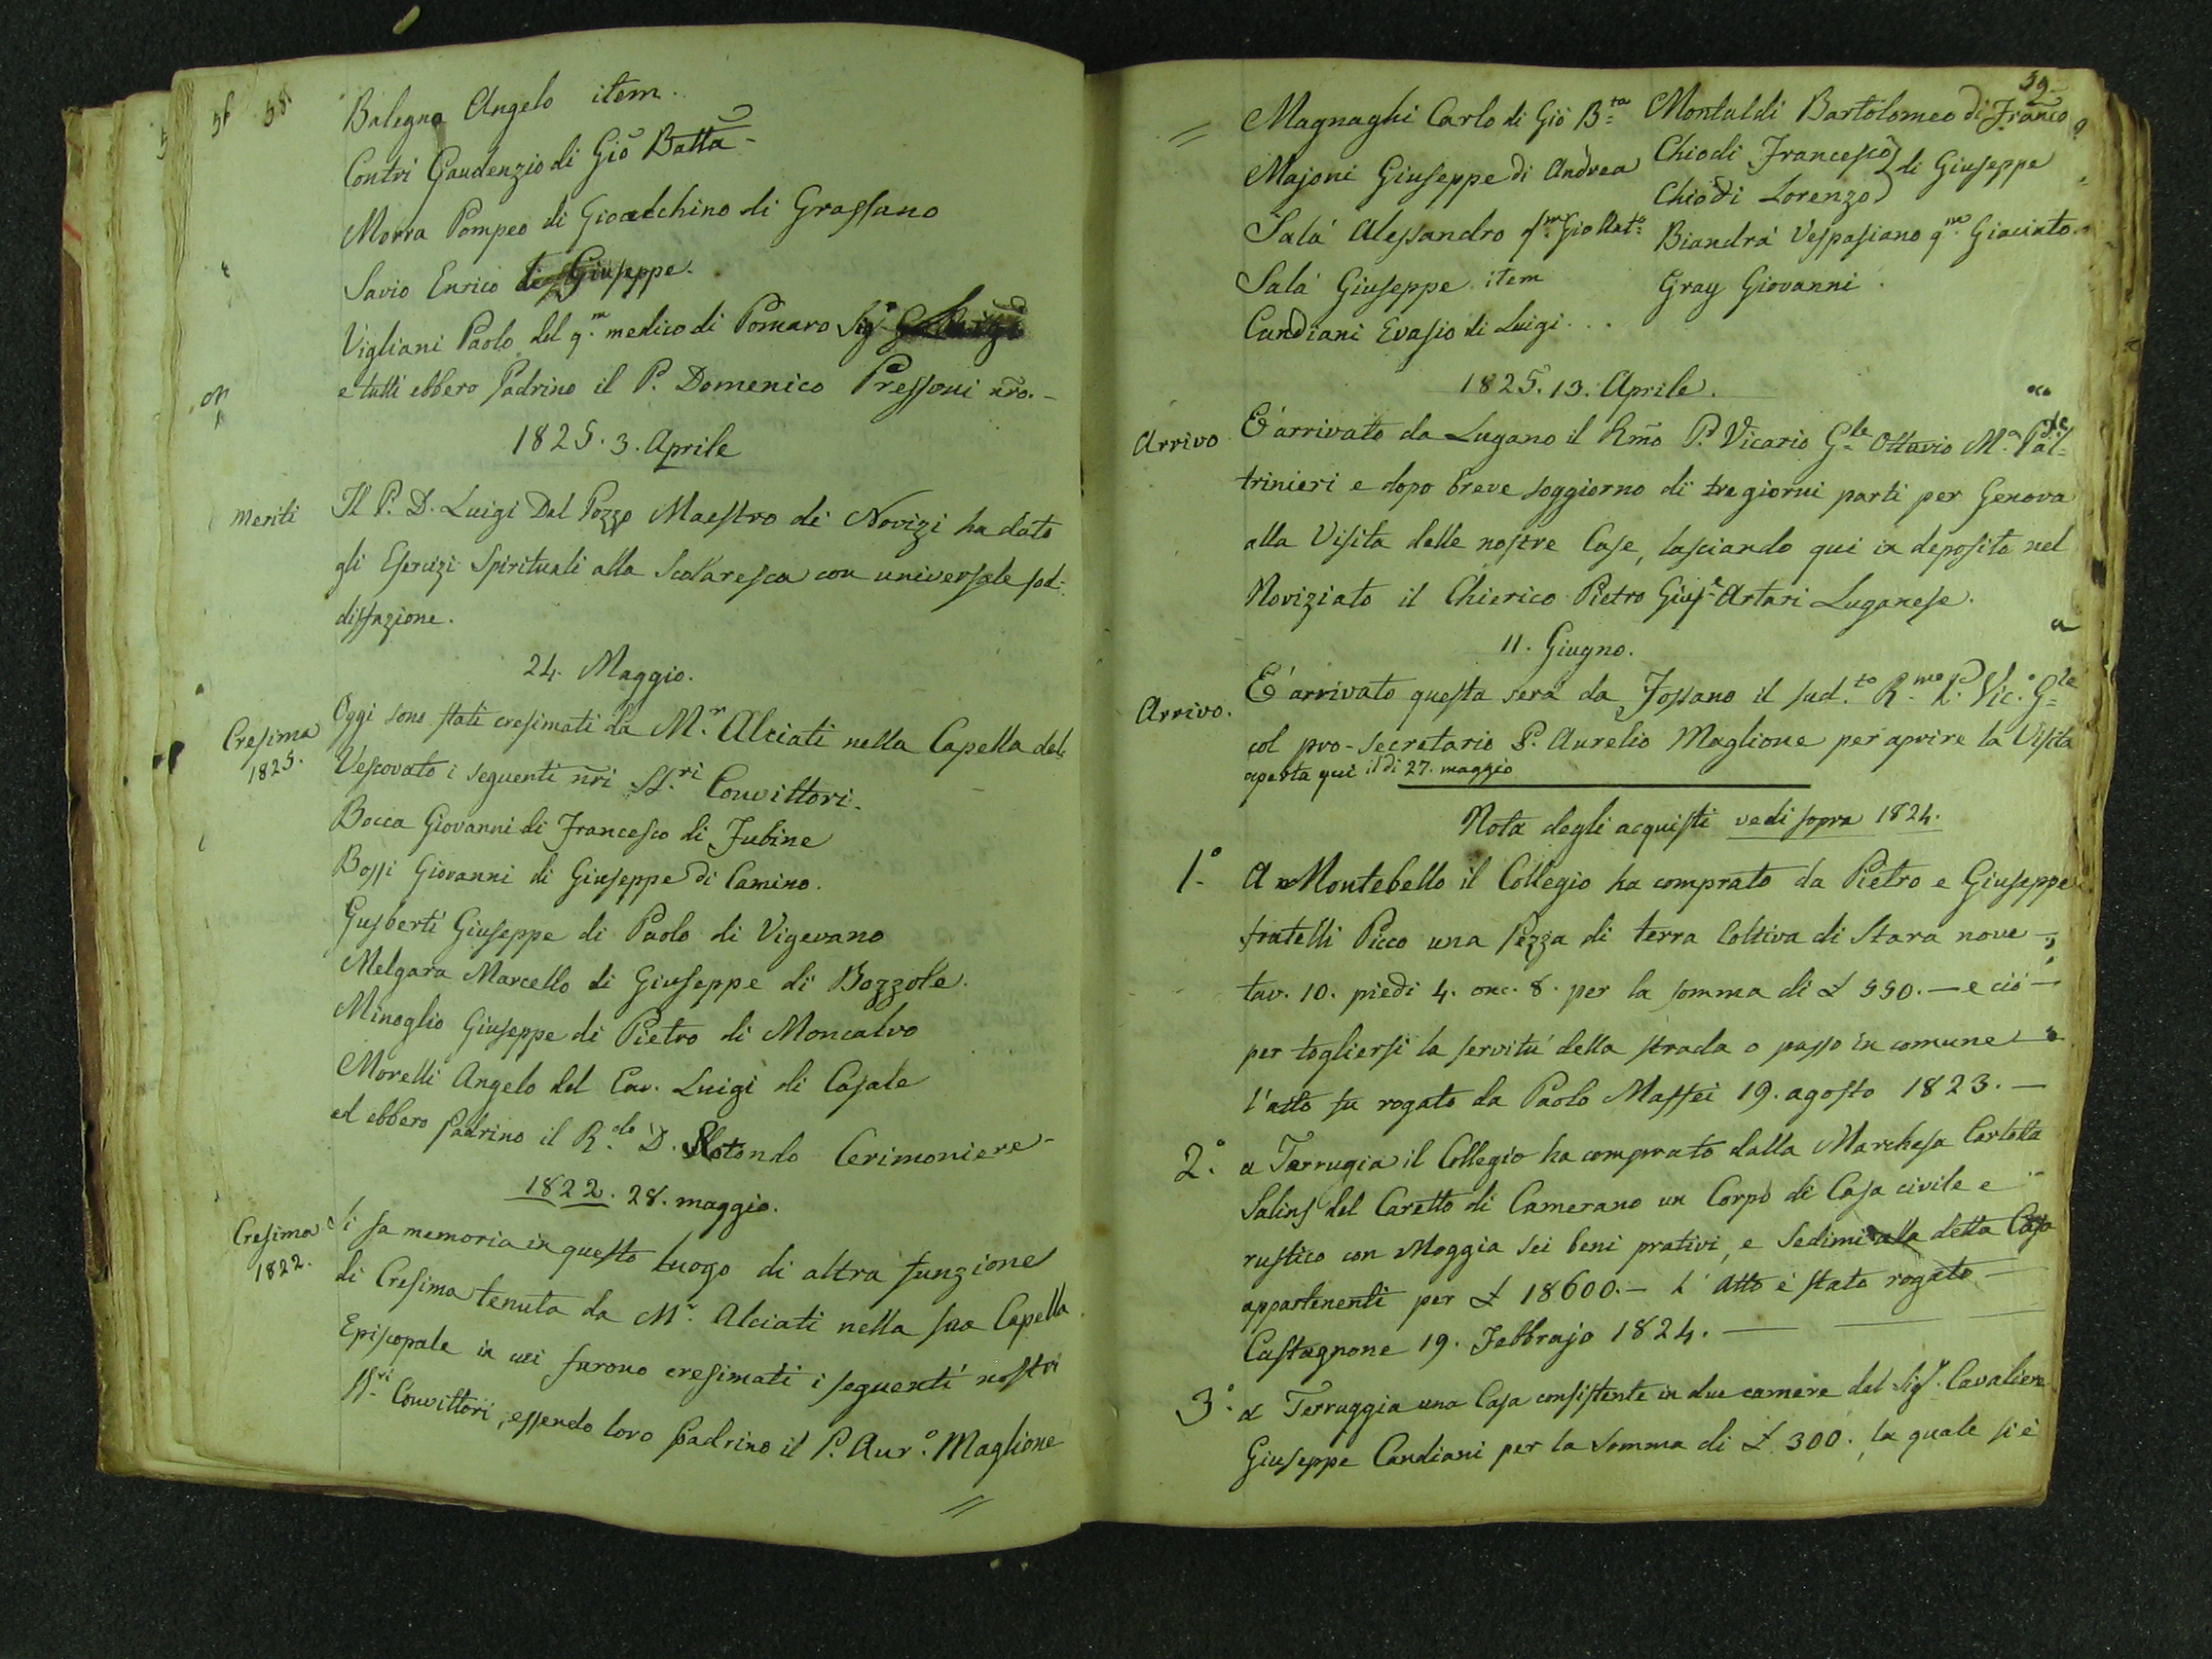 58.
Balegno Angelo item.
Contri Gaudenzio di Gio Batta-
Morra Pompeo di Gioachino di Grassano
Savio Enrico di Giuseppe.
Vigliani Paolo del q.m medico di Pomaro Sig.r
e tutti ebbero Padrino il P. Domenico Pressoni nro.-
1825. 3. Aprile
Meriti
Il P. D. Luigi Dal Pozzo Maestro di Novizi ha dato
gli Esercizi Spirituali alla Scolaresca con universale sod:
disfazione.
24. Maggio.
Cresima
1825.
Oggi sono stati cresimati da M.r Alciati nella Capella del
Vescovato i seguenti nri SS.ri Convittori.
Bocca Giovanni di Francesco di Fubine
Bossi Giovanni di Giuseppe di Camino.
Gusberti Giuseppe di Paolo di Vigevano
Melgara Marcello di Giuseppe di Bozzole.
Minoglio Giuseppe di Pietro di Moncalvo
Morelli Angelo del Cav. Luigi di Casale
ed ebbero Padrino il R.do D. Rotondo Cerimoniere-
1822. 28. maggio.
Cresima
1822.
Si fa memoria in questo luogo di altra funzione
di Cresima tenuta da M.r Alciati nella sua Capella
Episcopale in cui furono cresimati i seguenti nostri
SS.ri Convittori, essendo loro padrino il P. Aur.o Maglione
=
59
= Magnaghi Carlo di Gio B.ta Montaldi Bartolomeo di Franco
Majoni Giuseppe di Andrea Chiodi Francesco } di Giuseppe
Chiodi Lorenzo
Salá Alessandro q.m Gio Ant.o Biandrá Vespasiano q.m Giacinto.
Salá Giuseppe item Gray Giovanni.
Candiani Evasio di Luigi...
1825. 13. Aprile.
Arrivo
E' arrivato da Lugano il Rmo P. Vicario G.le Ottavio M.a Pal=
trinieri e dopo breve soggiorno di tre giorni parti per Genova
alla Visita delle nostre Case, lasciando qui in deposito nel
Noviziato il Chierico Pietro Gius.e Artari Luganese.
11. Giugno.
Arrivo.
E' arrivato questa sera da Fossano il sud.to R.mo P. Vic.o G.le
col pro-secretario P. Aurelio Maglione per aprire la Visita
aperta qui il di 27. maggio
Nota degli acquisti vedi sopra 1824.
1.o A Montebello il Collegio ha comprato da Pietro e Giuseppe
fratelli Picco una Pezza di terra Coltiva di Stara nove -
tav. 10. piedi 4. onc. 8. per la somma di £ 550. - e ció -
per togliersi la servitú della strada o passo in comune
l'atto fu rogato da Paolo Massei 19. agosto 1823. -
2.o a Terrugia il Collegio ha comprato dalla Marchesa Carlotta
Salins del Caretto di Camerano un Corpo di Casa civile e
rustico con Moggia sei beni prativi, e Sedimi alla detta Casa
appartenenti per £ 18600. - L' Atto é stato rogato -
Castagnone 19. Febbrajo 1824. -
3.o a Terruggia una Casa consistente in due camere del Sig.r Cavaliere
Giuseppe Candiani per la Somma di £. 300. la quale si é